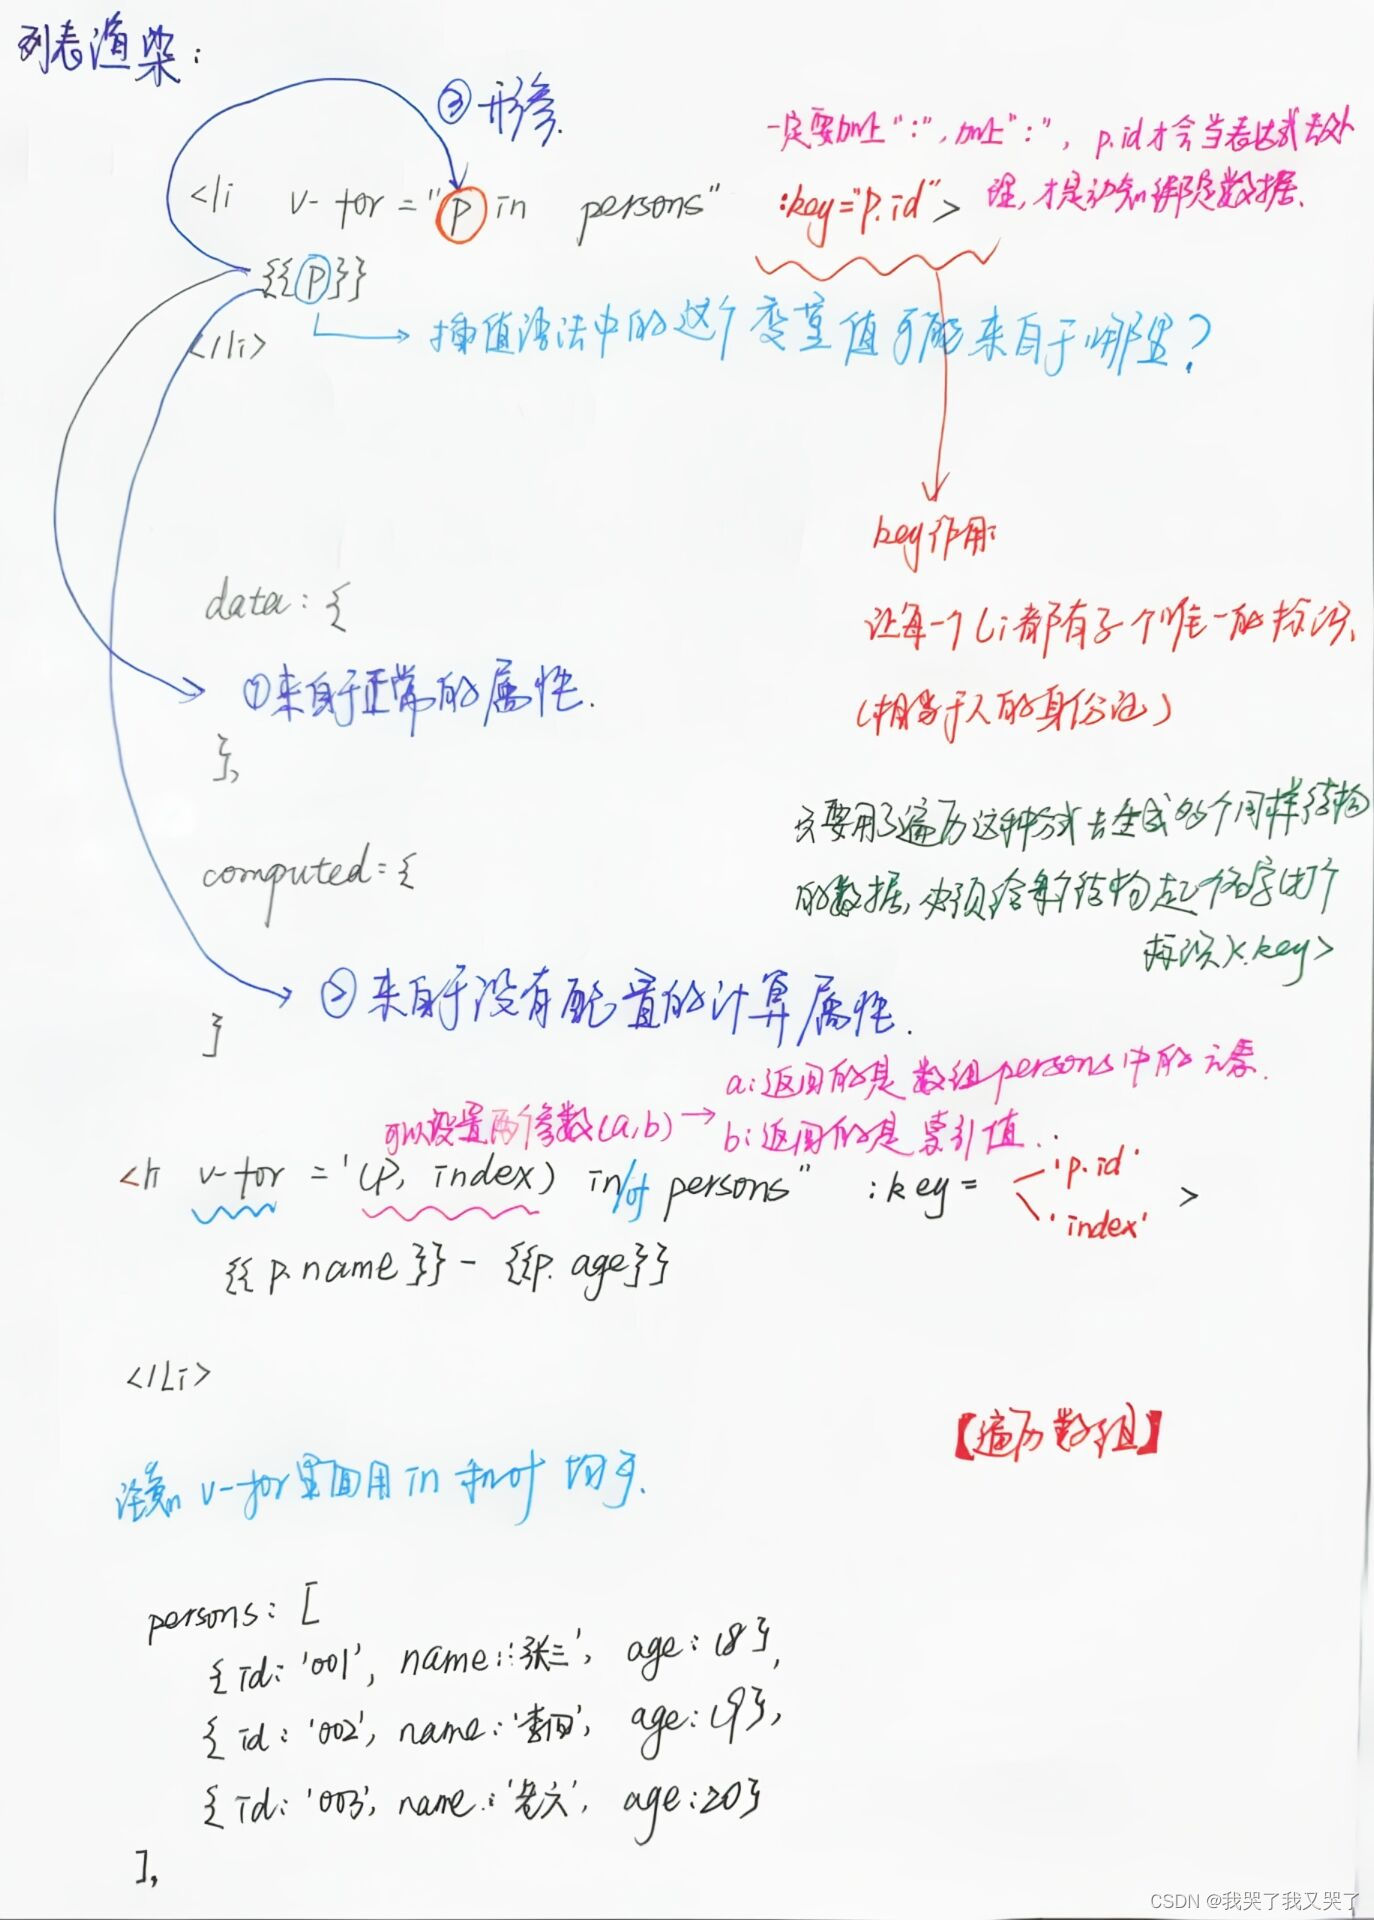 列表渲染:
③形参.
一定要加上":",加上":", p.id才会当表达式去处
理,才是动态绑定数据.
<li v-for="p in persons" :key="p.id">
{{p}}
</li>
插值语法中的这个变量值可能来自于哪里?
key作用:
让每一个Li都有了个唯一的标识.
(相当于人的身份证)
data:{
①来自于正常的属性.
},
只要用了遍历这种方式去生成多个同样结构
的数据,必须给每个结构起个名字(打个
标识)<key>
computed={
②来自于没有配置的计算属性.
}
可以设置两个参数(a,b)
a:返回的是数组persons中的元素.
b:返回的是索引值..
<li v-for='(p, index) in/of persons" :key= 'p.id' 'index' >
{{p.name}}-{{p.age}}
</Li>
【遍历数组】
注意: v-for里面用in和of均可.
persons:[
{id:'001',name:'张三',age:18},
{id:'002',name:'李四',age:19},
{id:'003',name:'老六',age:20}
],
CSDN @我哭了我又哭了